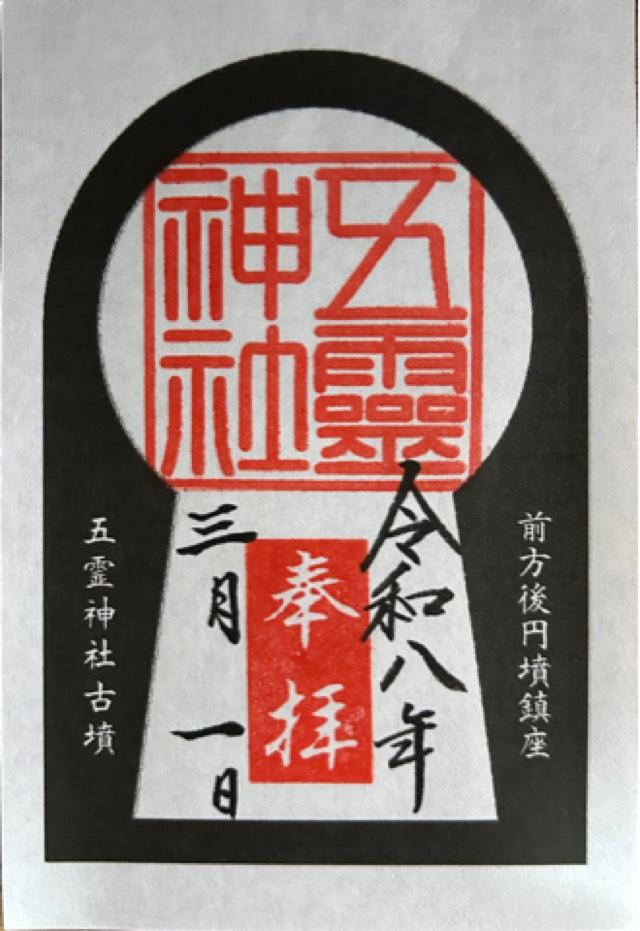 五靈
神社
前方後円墳鎮座
令和八年
奉拝
三月一日
五霊神社古墳